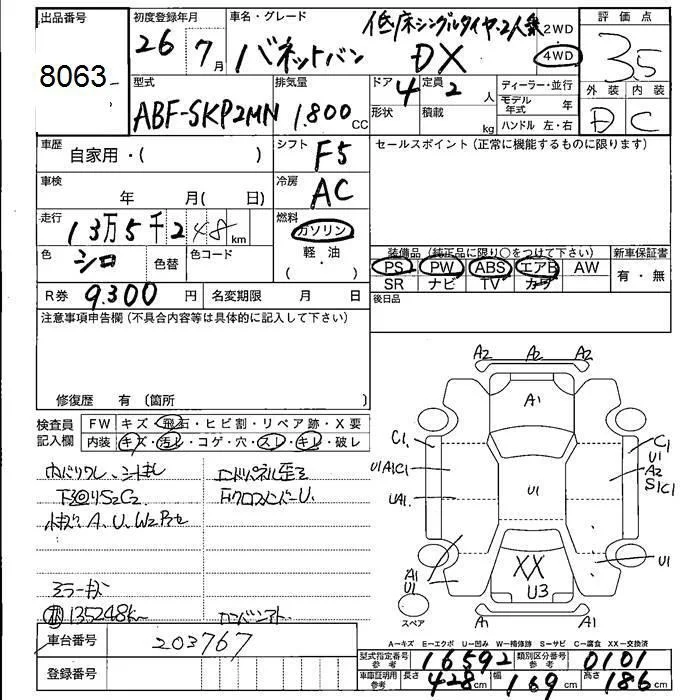 出品番号
8063
初度登録年月
26 7月
車名・グレード
低床シングルタイヤ・2人乗
バネットバン DX
2WD
4WD
評価点
3.5
外装 内装
D C
型式
ABF-SKP2MN
排気量
1,800 CC
ドア 4
形状
定員 2 人
積載 kg
ディーラー・並行
モデル年式 年
ハンドル 左・右
車歴
自家用・( )
シフト
F5
セールスポイント(正常に機能するものに限ります)
車検
年 月( 日)
冷房
AC
走行
13万5千248 km
燃料
ガソリン
軽・油
( ・ )
色
シロ
色替
色コード
装備品(純正品に限り○をつけて下さい)
PS PW ABS エアB AW
SR ナビ TV カワ
新車保証書
有・無
R券 9,300 円
名変期限 月 日
後日品
注意事項申告欄(不具合内容等は具体的に記入して下さい)
修復歴 有 〔箇所 〕
検査員記入欄
FW キズ・飛石・ヒビ割・リペア跡・X要
内装 キズ・汚レ・コゲ・穴・スレ・キレ・破レ
下廻りS2C2
小キズ、A、U、W2アセ
ミラーキズ
135248km
コアパネル歪ミ
FクロスメンバーU
A2 A2 A2
A1
C1
U1A1C1
UA1
U1
C1
U1
A2
S1C1
U1
A1
U1
XX
U3
A1 A1
スペア
A-キズ E-エクボ U-凹み W-補修跡 S-サビ C-腐食 XX-交換済
車台番号
203767
登録番号
型式指定番号参考 16592
類別区分番号参考 0101
車庫証明用参考 長さ 428cm 幅 169cm 高さ 186cm